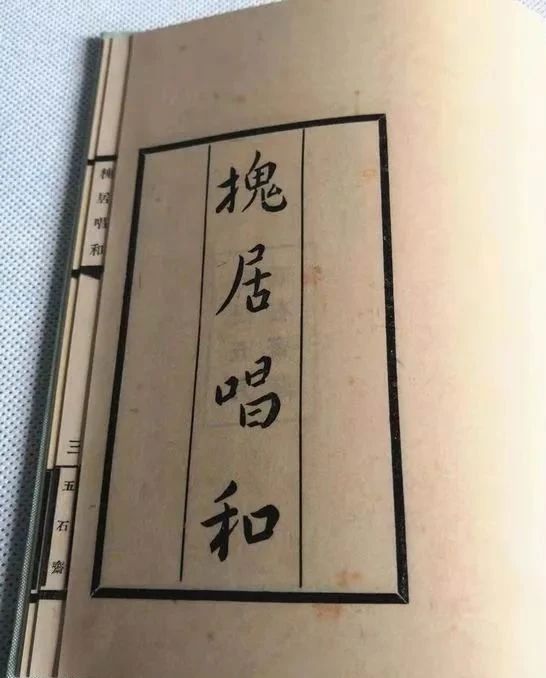 槐居唱和
槐居唱和
三
五石齋